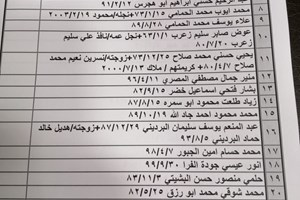 عبد الرحيم حسني ابراهيم ابو جرس ٩١/٢/١٢
٨ محمد ايوب محمد الحمامي ٧٣/١/١٥+نجله/محمود ٢٠٠٣/٢/١٩
٩ علاء يوسف محمد الحمامي ٨٩/٨/٢٨
١٠ عوض صابر سليم زعرب ٦٣/١/١+نجل عمه/نافذ علي سليم زعرب ٨٠/٧/٢٠
١١ يحيى حسني محمد صلاح ٧٣/١/١٥+زوجته/نسرين نعيم محمد صلاح ٨٠/٤/٧+كريمتهم / ملاك ٢٠٠٠/٧/١٣
١٢ منير جمال مصطفي المصري ٩٦/٤/١١
١٣ بشار فتحي اسماعيل خضر ٨٢/٩/١٥
١٤ زياد طلعت محمود ابو سمره ٨٧/٨/١٥
١٥ محمود محمد احمد جاد الله ٨٩/١٠/١٩
١٦ عبد المنعم يوسف سليمان البرديني ٨٧/١٢/٢٩+زوجته/هديل خالد البرديني ٩٣/٨/٥
١٧ محمد حسام امين الجبور ٩٨/٤/٧
١٨ انور عيسي جودة الفرا ٩٩/٩/٣٠
١٩ حلمي منصور حسن البشيتي ٨٣/١١/٣
٢٠ محمد شوقي محمد ابو رزق ٨٢/٥/٢٥